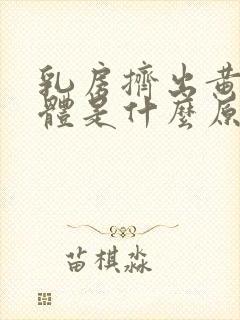 乳房擠出黃
體是什麼原
苗棋淼